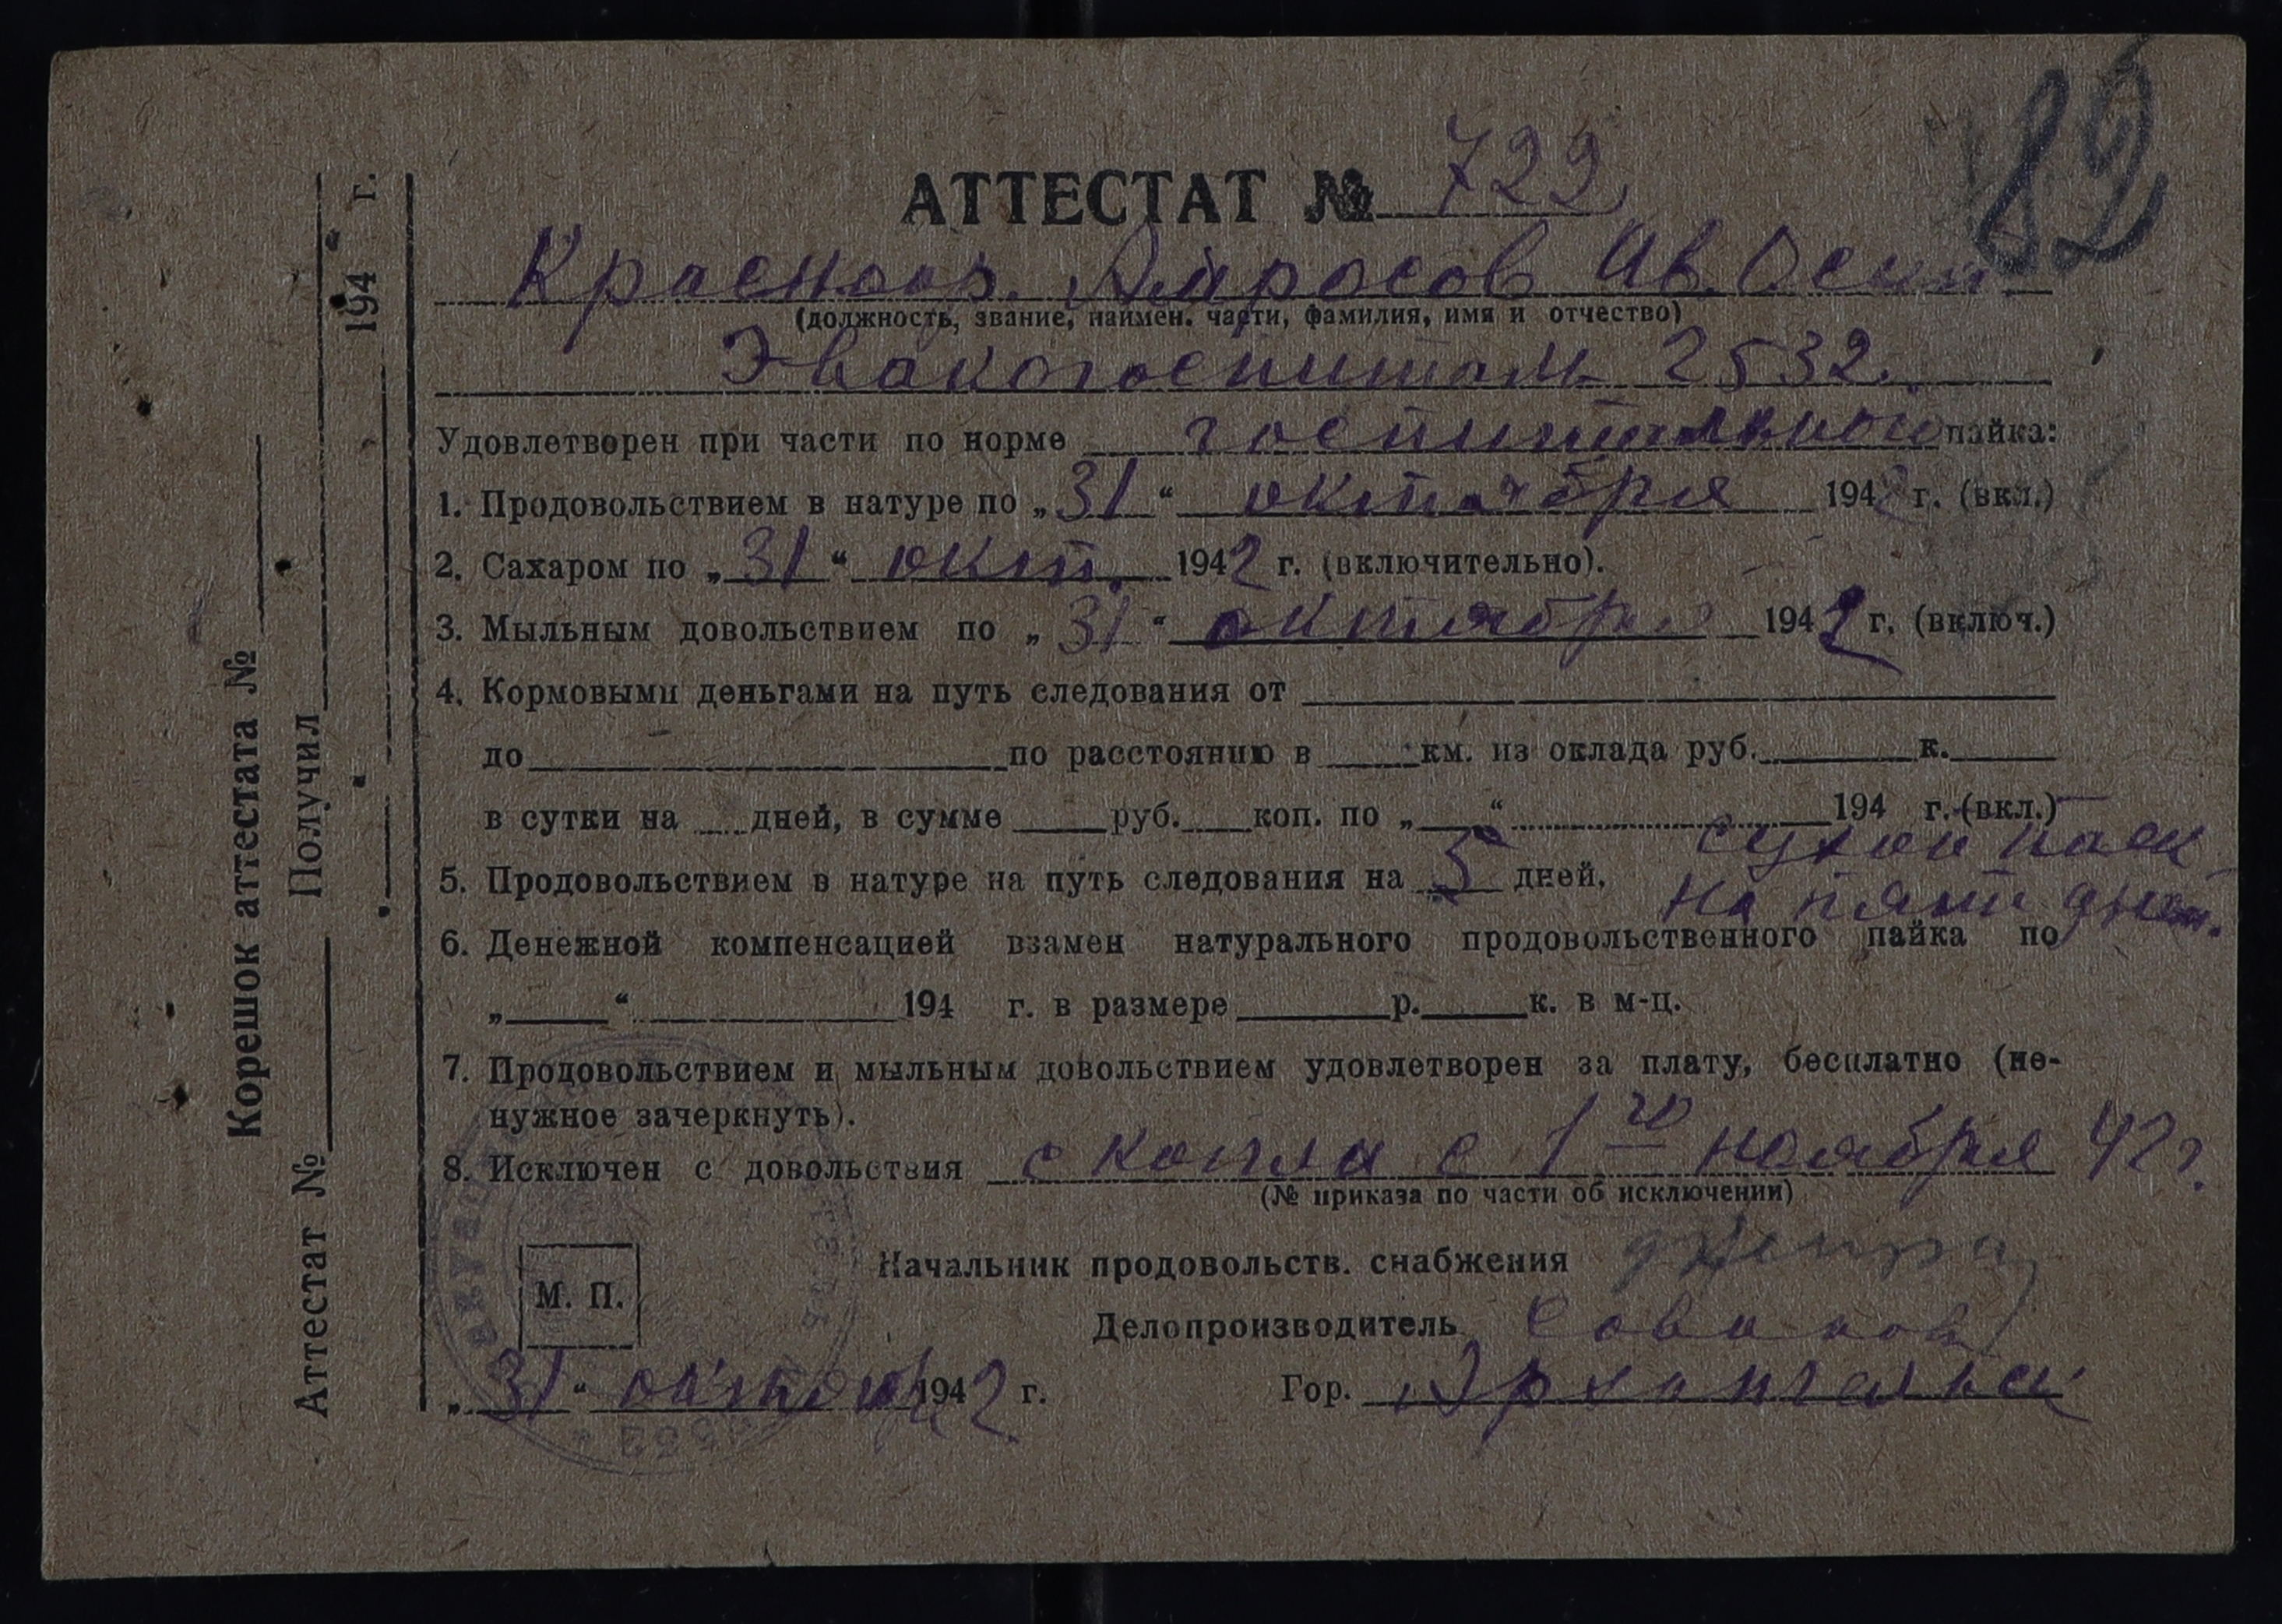 82
АТТЕСТАТ № 722
Красноар. Амросов Ив. Осип
(должность, звание, наимен. части, фамилия, имя и отчество)
Эвакогоспиталь 2532.
Удовлетворен при части по норме госпитального пайка:
1. Продовольствием в натуре по „31“ октября 1942 г. (вкл.)
2. Сахаром по „31“ окт. 1942 г. (включительно).
3. Мыльным довольствием по „31“ октября 1942 г. (включ.)
4. Кормовыми деньгами на путь следования от
до по расстоянию в км. из оклада руб. к.
в сутки на дней, в сумме руб. коп. по „ “ 194 г. (вкл.)
5. Продовольствием в натуре на путь следования на 5 дней, сухой паек
на пять дней.
6. Денежной компенсацией взамен натурального продовольственного пайка по
„ “ 194 г. в размере р. к. в м-ц.
7. Продовольствием и мыльным довольствием удовлетворен за плату, бесплатно (не-
нужное зачеркнуть).
8. Исключен с довольствия с котла с 1го ноября 42 г.
(№ приказа по части об исключении)
Начальник продовольств. снабжения
М. П.
Делопроизводитель
„31“ октября 1942 г. Гор. Архангельск
Корешок аттестата №
Аттестат № Получил
194 г.